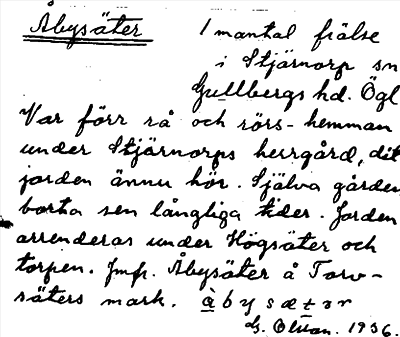 Åbysäter 1 mantal frälse
i Stjärnorp sn
Gullbergs hd. Ögl
Var förr rå och rörs-hemman
under Stjärnorps herrgård, dit
jorden ännu hör. Själva gården
borta sen långliga tider. Jorden
arrenderas under Högsäter och
torpen. Jmf. Åbysäter å Torv-
säters mark. àbysætər
G. Olman. 1936.